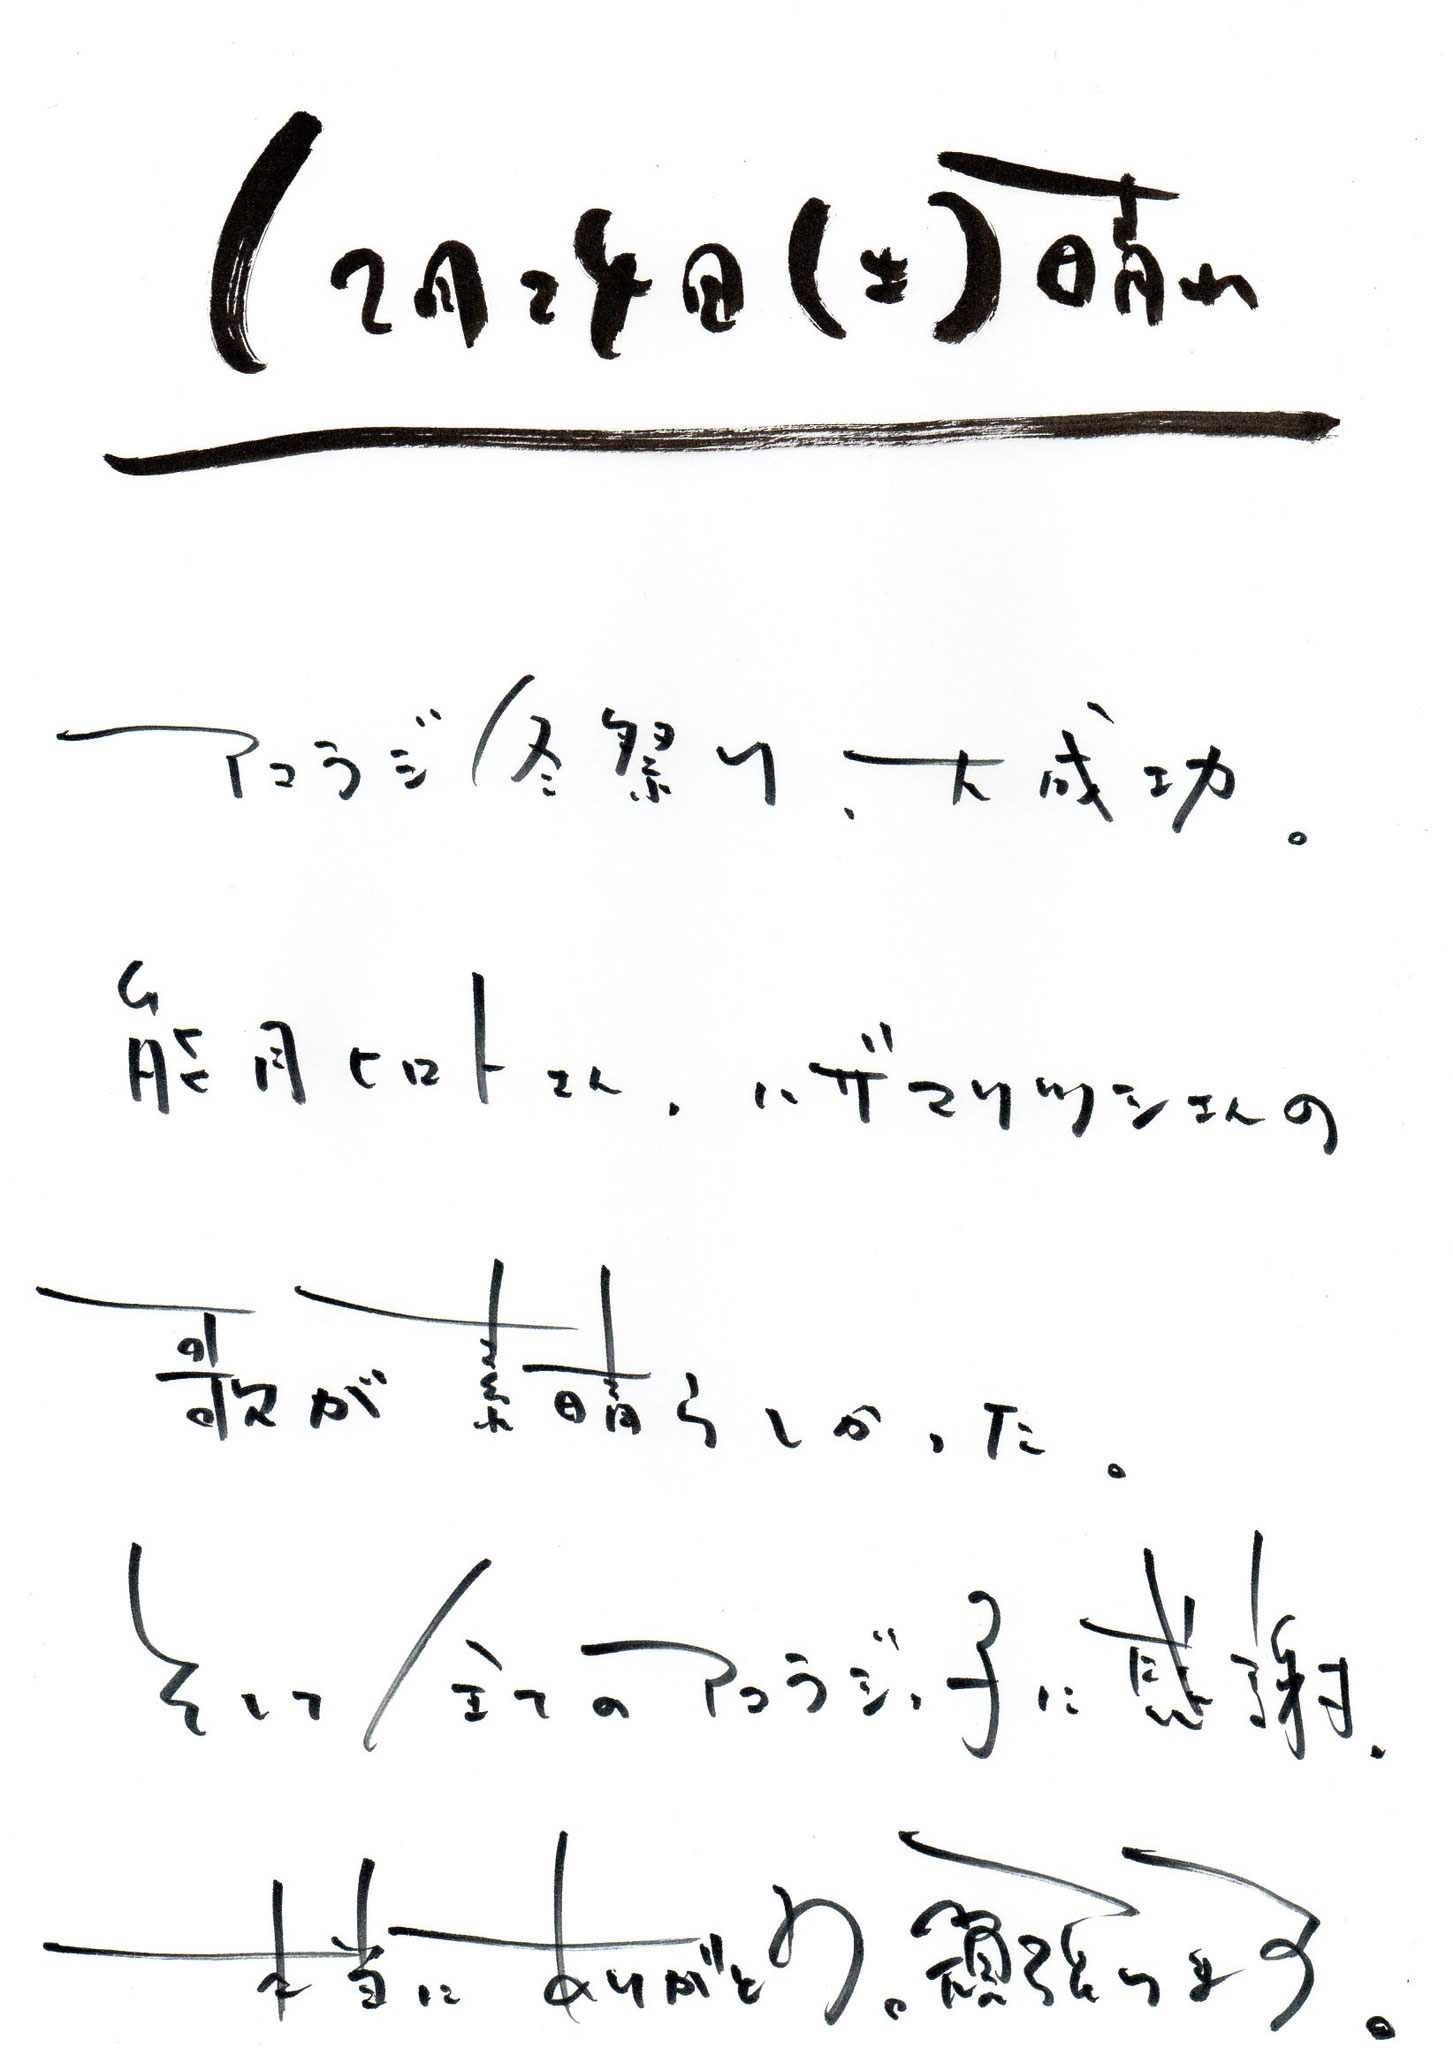 (2月24日(土)晴れ
アコラジ冬祭り、大成功。
熊月ヒロトさん、ハザマリツシさんの
歌が素晴らしかった。
そして全てのアコラジっ子に感謝、
本当にありがとう。頑張ります。